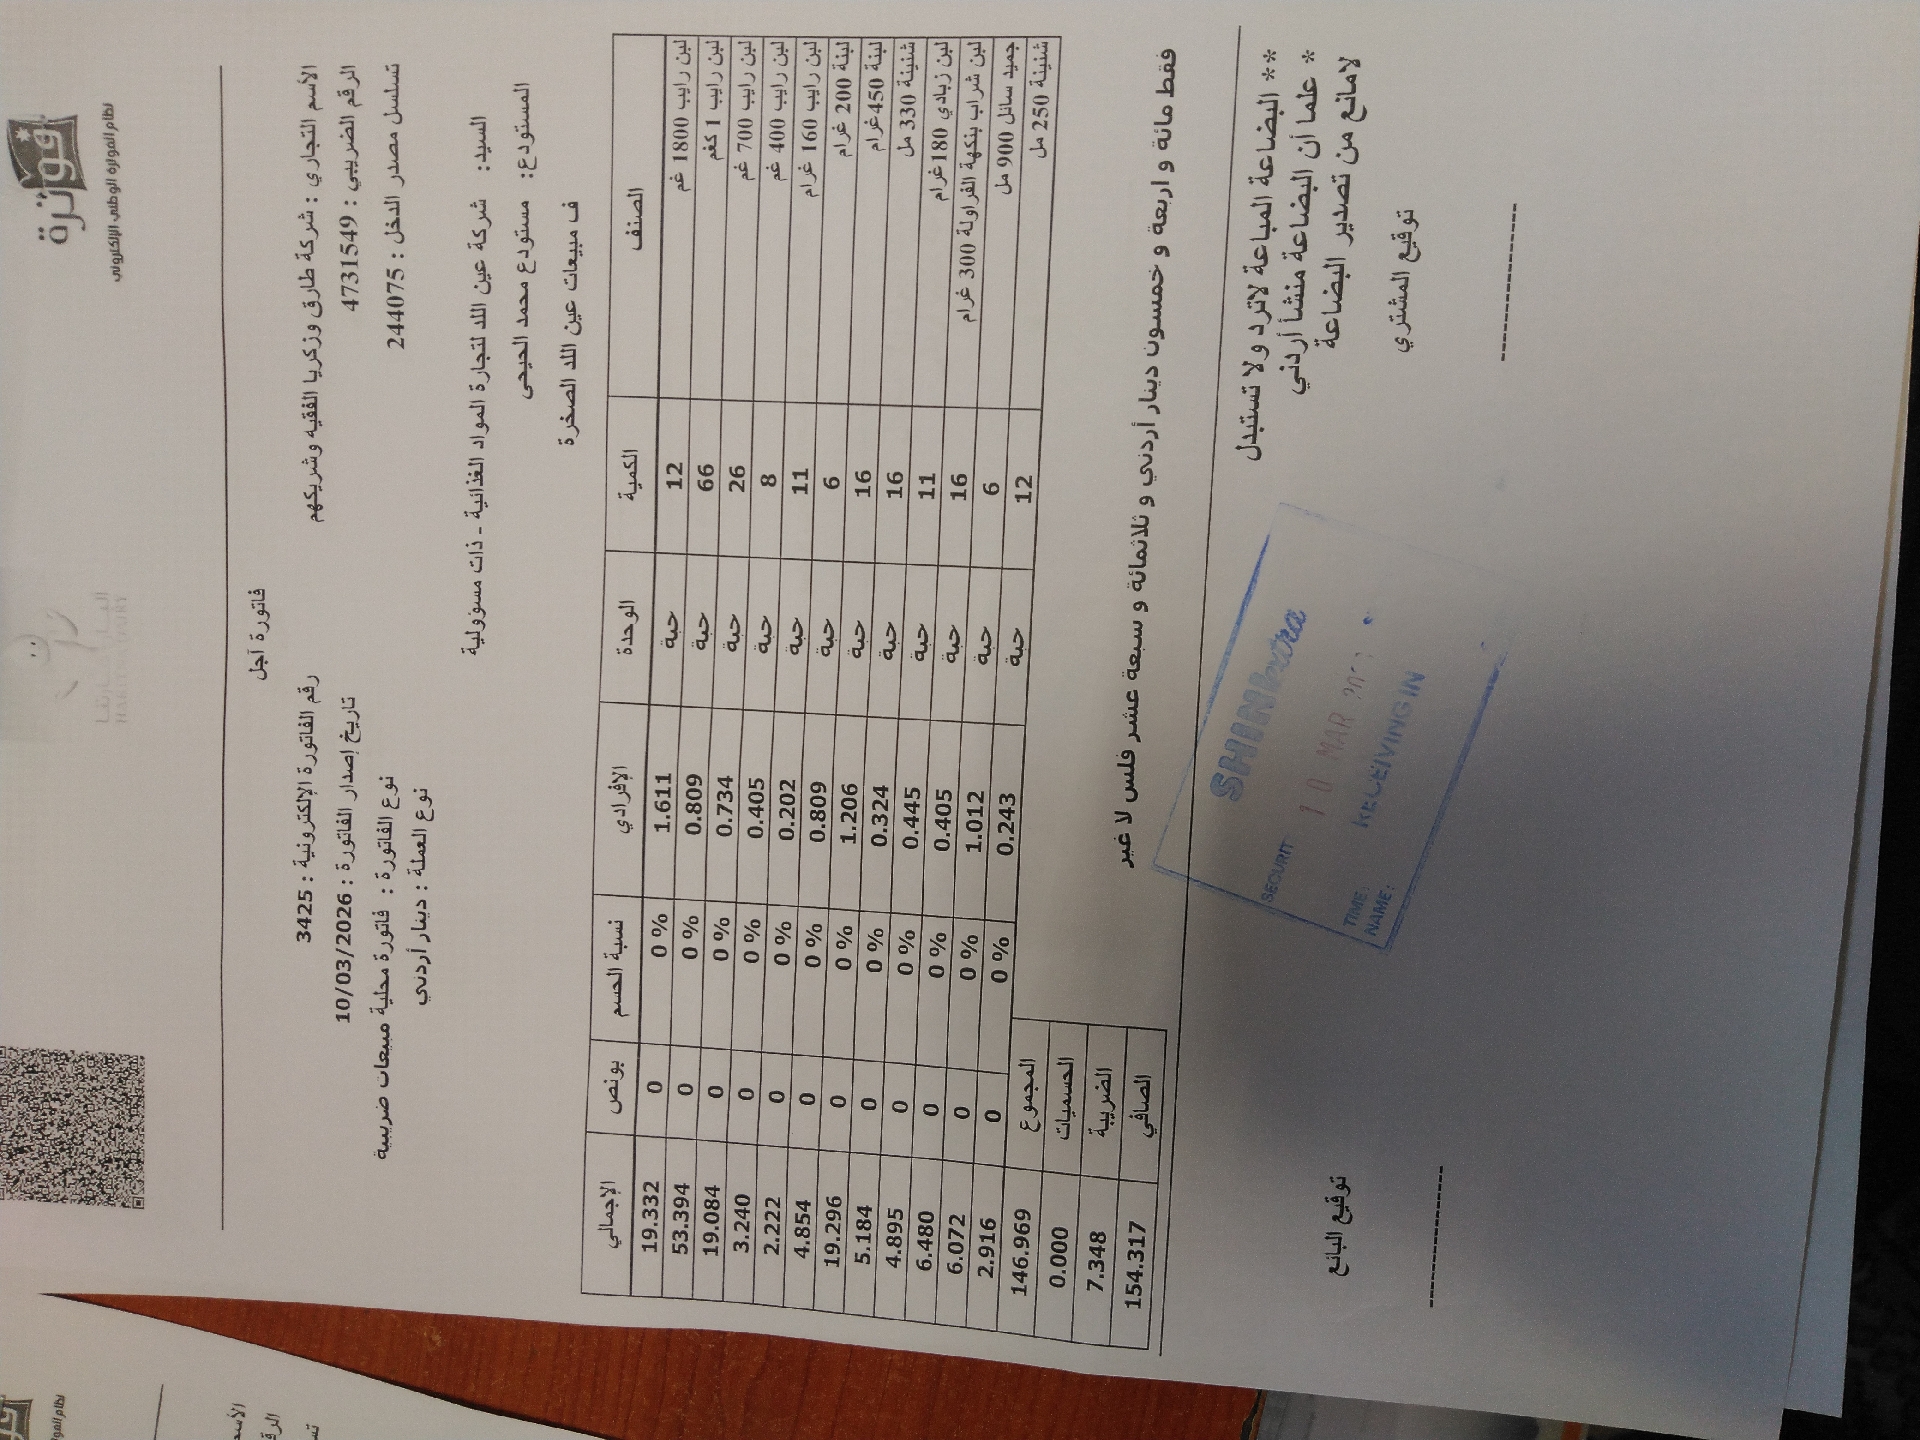 فوترة
نظام الفوترة الوطني الإلكتروني
فاتورة آجل
الأسم التجاري : شركة طارق وزكريا الفقيه وشريكهم
رقم الفاتورة الإلكترونية : 3425
الرقم الضريبي : 4731549
تاريخ إصدار الفاتورة : 10/03/2026
تسلسل مصدر الدخل : 244075
نوع الفاتورة : فاتورة محلية مبيعات ضريبية
نوع العملة : دينار أردني
السيد: شركة عين اللد لتجارة المواد الغذائية - ذات مسؤولية
المستودع: مستودع محمد الحيحى
ف مبيعات عين اللد الصخرة
الصنف الكمية الوحدة الإفرادي نسبة الحسم بونص الإجمالي
لبن رايب 1800 غم 12 حبة 1.611 0 % 0 19.332
لبن رايب 1 كغم 66 حبة 0.809 0 % 0 53.394
لبن رايب 700 غم 26 حبة 0.734 0 % 0 19.084
لبن رايب 400 غم 8 حبة 0.405 0 % 0 3.240
لبن رايب 160 غرام 11 حبة 0.202 0 % 0 2.222
لبنة 200 غرام 6 حبة 0.809 0 % 0 4.854
لبنة 450غرام 16 حبة 1.206 0 % 0 19.296
شنينة 330 مل 16 حبة 0.324 0 % 0 5.184
لبن زبادي 180غرام 11 حبة 0.445 0 % 0 4.895
لبن شراب بنكهة الفراولة 300 غرام 16 حبة 0.405 0 % 0 6.480
جميد سائل 900 مل 6 حبة 1.012 0 % 0 6.072
شنينة 250 مل 12 حبة 0.243 0 % 0 2.916
المجموع 146.969
الحسميات 0.000
الضريبة 7.348
الصافي 154.317
فقط مائة و اربعة و خمسون دينار أردني و ثلاثمائة و سبعة عشر فلس لا غير
** البضاعة المباعة لاترد ولا تستبدل
* علما أن البضاعة منشأ أردني
لامانع من تصدير البضاعة
SECURIT
10 MAR
TIME:
RECEIVING IN
NAME:
توقيع المشتري
توقيع البائع